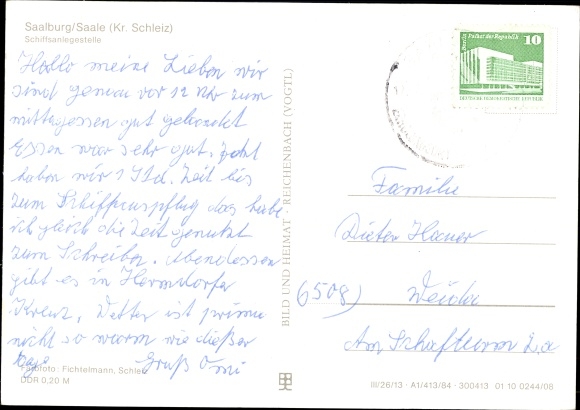 Saalburg/Saale (Kr. Schleiz)
Schiffsanlegestelle
Hallo meine Lieben wir
sind genau vor 12 Uhr zum
mittagessen gut gelandet
Essen war sehr gut, jetzt
haben wir 1 Std. Zeit bis
zum Schiffsausflug das habe
ich gleich die Zeit genutzt
zum Schreiben. Abendessen
gibt es in Hermdorfer
Kreuz, Wetter ist prima
nicht so warm wie dießer
Tage Gruß Omi
Farbfoto: Fichtelmann, Schleiz
DDR 0,20 M
BILD UND HEIMAT · REICHENBACH (VOGTL)
Berlin Palast der Republik
10
DEUTSCHE DEMOKRATISCHE REPUBLIK
Familie
Dieter
(6508) Weida
Am Schafturm 2a
III/26/13 · A1/413/84 · 300413 01 10 0244/08